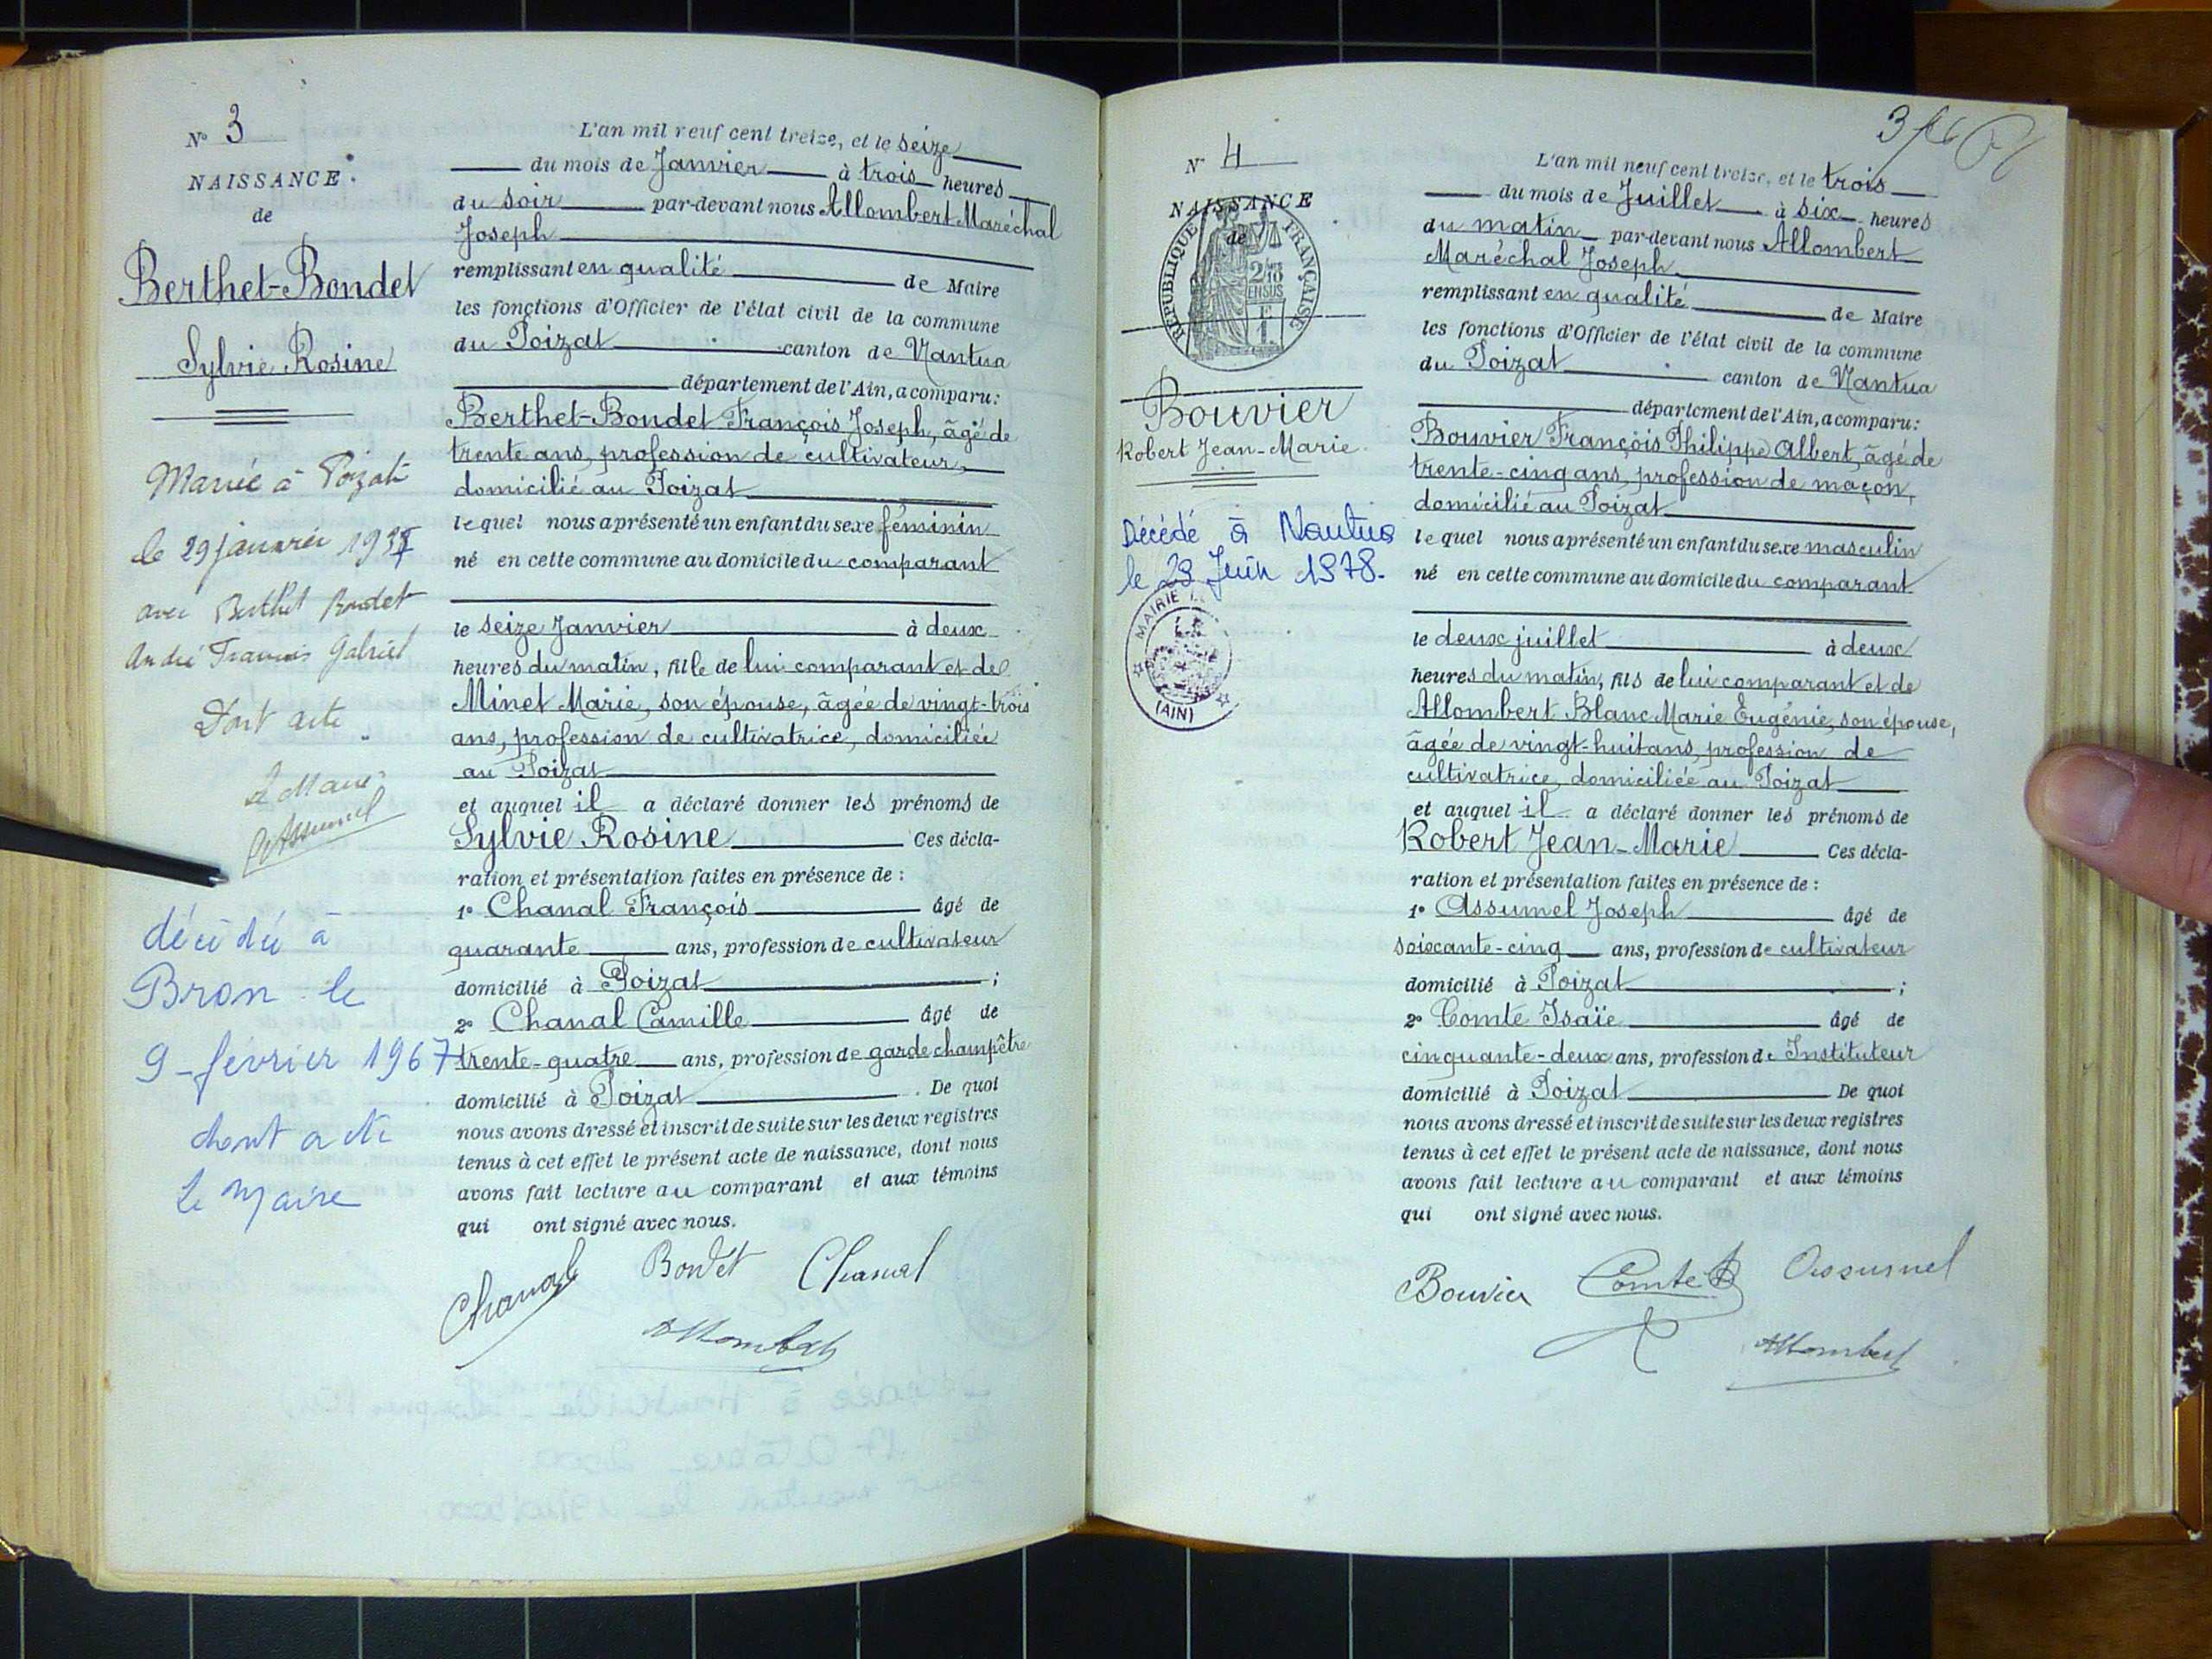 N° 3
NAISSANCE
de
Berthet-Bondet
Sylvie Rosine
Mariée à Poizat
le 29 janvier
avec Berthet Bondet
André François Gabriel
Dont acte
Le Maire
décédée à
Bron le
9 février 1967
dont acte
Le Maire
L'an mil neuf cent treize, et le seize
du mois de Janvier à trois heures
du soir par-devant nous Allombert Maréchal
Joseph
remplissant en qualité de Maire
les fonctions d'Officier de l'état civil de la commune
du Poizat canton de Nantua
département de l'Ain, a comparu:
Berthet-Bondet François Joseph, âgé de
trente ans, profession de cultivateur,
domicilié au Poizat
lequel nous a présenté un enfant du sexe féminin
né en cette commune au domicile du comparant
le seize Janvier à deux
heures du matin, fille de lui comparant et de
Minet Marie, son épouse, âgée de vingt-trois
ans, profession de cultivatrice, domiciliée
au Poizat
et auquel il a déclaré donner les prénoms de
Sylvie Rosine Ces décla-
ration et présentation faites en présence de :
1° Chanal François âgé de
quarante ans, profession de cultivateur
domicilié à Poizat ;
2° Chanal Camille âgé de
trente-quatre ans, profession de garde champêtre
domicilié à Poizat . De quoi
nous avons dressé et inscrit de suite sur les deux registres
tenus à cet effet le présent acte de naissance, dont nous
avons fait lecture au comparant et aux témoins
qui ont signé avec nous.
Chanal Bondet Chanal
Allombert
3
N° 4
NAISSANCE
de
REPUBLIQUE FRANÇAISE
Bouvier
Robert Jean-Marie
Décédé à Nantua
le 29 Juin 1978.
MAIRIE
(AIN)
L'an mil neuf cent treize, et le trois
du mois de Juillet à six heures
du matin par-devant nous Allombert
Maréchal Joseph
remplissant en qualité de Maire
les fonctions d'Officier de l'état civil de la commune
du Poizat canton de Nantua
département de l'Ain, a comparu:
Bouvier François Philippe Albert, âgé de
trente-cinq ans, profession de maçon,
domicilié au Poizat
lequel nous a présenté un enfant du sexe masculin
né en cette commune au domicile du comparant
le deux juillet à deux
heures du matin, fils de lui comparant et de
Allombert Blanc Marie Eugénie, son épouse,
âgée de vingt-huit ans, profession de
cultivatrice, domiciliée au Poizat
et auquel il a déclaré donner les prénoms de
Robert Jean-Marie Ces décla-
ration et présentation faites en présence de :
1° Assumel Joseph âgé de
soixante-cinq ans, profession de cultivateur
domicilié à Poizat ;
2° Comte Isaïe âgé de
cinquante-deux ans, profession de Instituteur
domicilié à Poizat De quoi
nous avons dressé et inscrit de suite sur les deux registres
tenus à cet effet le présent acte de naissance, dont nous
avons fait lecture au comparant et aux témoins
qui ont signé avec nous.
Bouvier Comte Assumel
Allombert